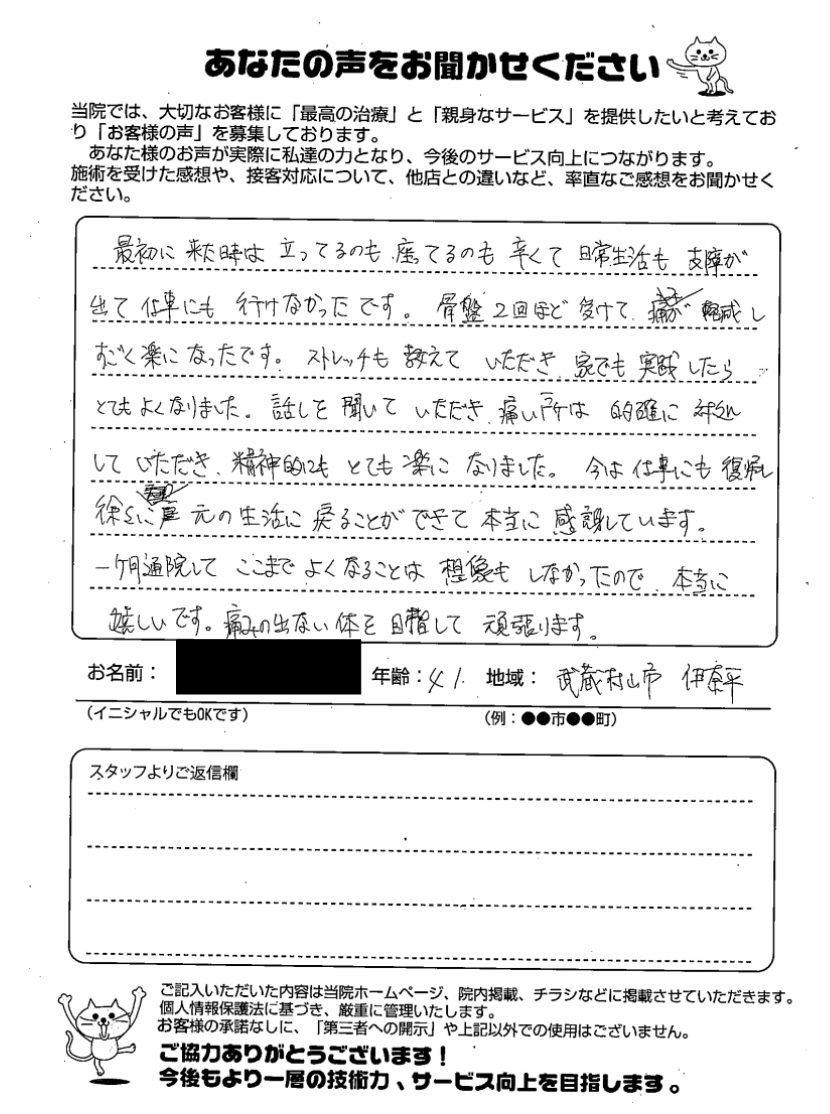 あなたの声をお聞かせください
当院では、大切なお客様に「最高の治療」と「親身なサービス」を提供したいと考えてお
り「お客様の声」を募集しております。
あなた様のお声が実際に私達の力となり、今後のサービス向上につながります。
施術を受けた感想や、接客対応について、他店との違いなど、率直なご感想をお聞かせく
ださい。
最初に来た時は立ってるのも座ってるのも辛くて日常生活も支障が
出て仕事にも行けなかったです。骨盤2回ほど受けて、痛みが軽減し
すごく楽になったです。ストレッチも教えていただき家でも実践したら
とてもよくなりました。話しを聞いていただき、痛い所は的確に対処
していただき、精神的にもとても楽になりました。今は仕事にも復帰し
徐々に元の生活に戻ることができて本当に感謝しています。
一ヶ月通院してここまでよくなることは想像もしなかったので、本当に
嬉しいです。痛みの出ない体を目指して頑張ります。
お名前： 年齢：41. 地域：武蔵村山市 伊奈平
(イニシャルでもOKです) (例：●●市●●町)
スタッフよりご返信欄
ご記入いただいた内容は当院ホームページ、院内掲載、チラシなどに掲載させていただきます。
個人情報保護法に基づき、厳重に管理いたします。
お客様の承諾なしに、「第三者への開示」や上記以外での使用はございません。
ご協力ありがとうございます！
今後もより一層の技術力、サービス向上を目指します。